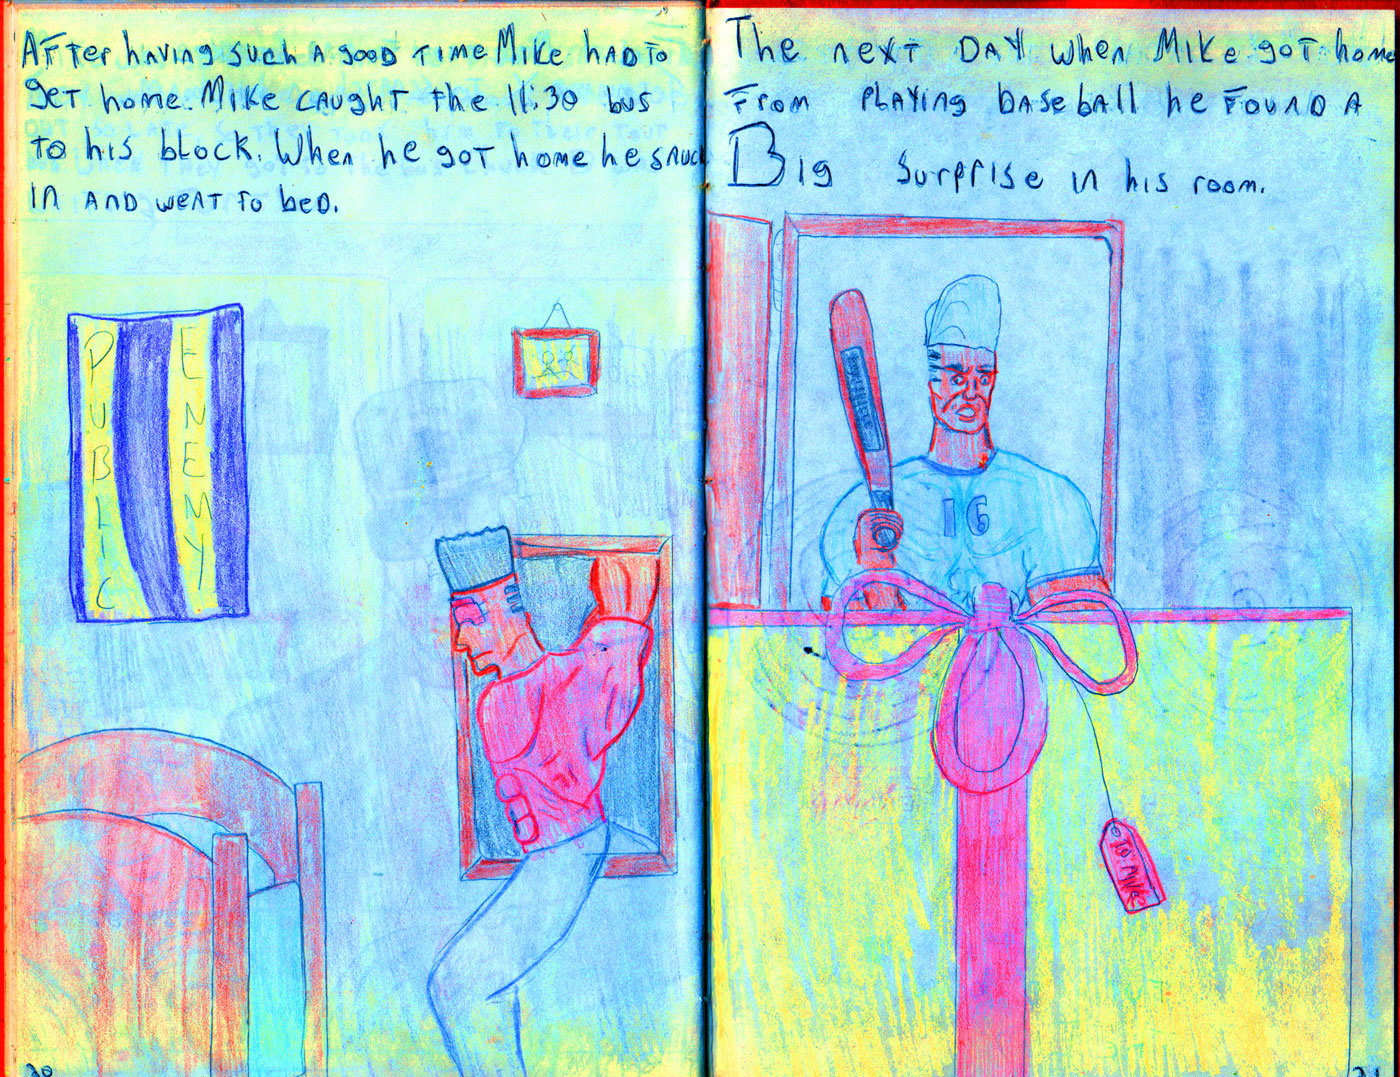 After having such a good time Mike had to
get home. Mike caught the 11:30 bus
to his block. When he got home he snuck
in and went to bed.
PUBLIC
ENEMY
20
The next day when Mike got home
From playing baseball he found a
Big surprise in his room.
16
To Mike
21